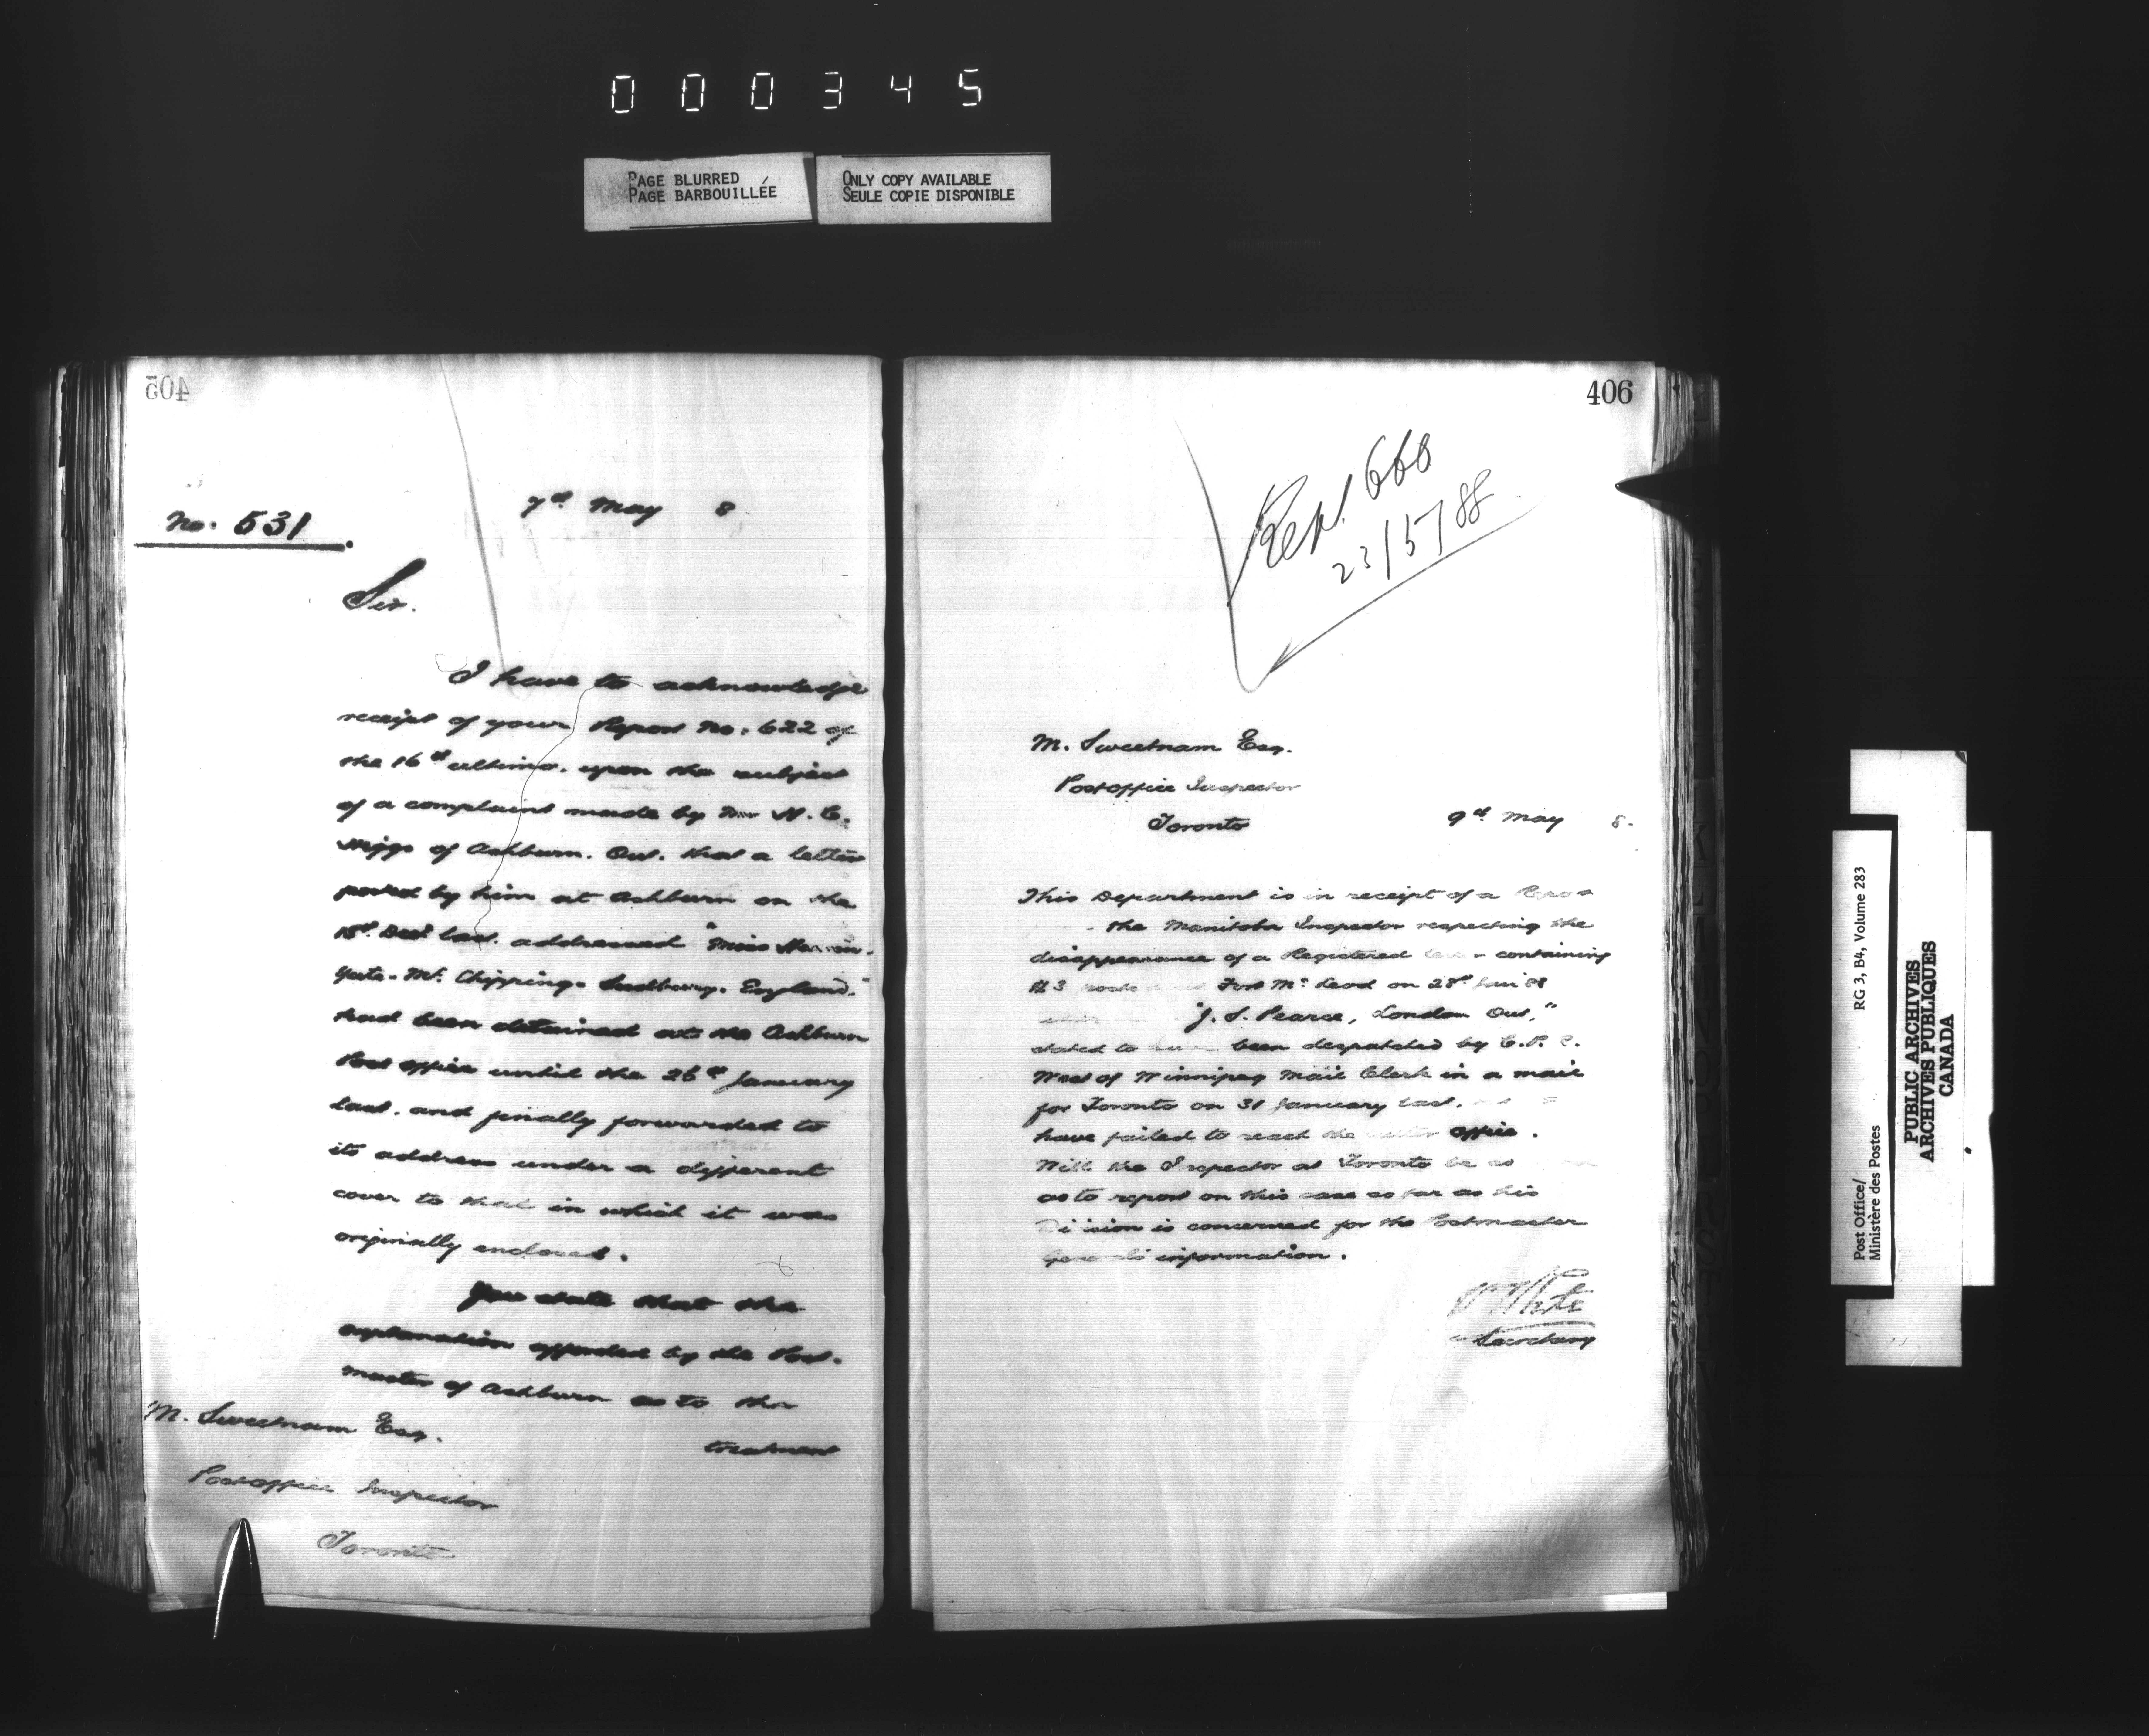 000345
PAGE BLURRED
PAGE BARBOUILLÉE
ONLY COPY AVAILABLE
SEULE COPIE DISPONIBLE
405
No. 531
7th May 8
Sir.
I have to acknowledge
receipt of your Report No. 622 of
the 16th ultimo. upon the subject
of a complaint made by Mr
of Ashburn. Ont. that a letter
posted by him at Ashburn on the
Decr last. addressed "Miss
Yate. Mt. Chipping. Sudbury. England."
had been detained at the Ashburn
Post Office until the 26th January
last. and finally forwarded to
its address under a different
cover to that in which it was
originally enclosed.
You state that the
explanation afforded by the Post-
master of Ashburn as to the
treatment
M. Sweetnam Esq.
Post office Inspector
Toronto
406
Rep. 668
23/5/88
M. Sweetnam Esq.
Post office Inspector
Toronto
9th May 8.
This Department is in receipt of a Report
the Manitoba Inspector respecting the
disappearance of a Registered containing
$3 Fort Mc Leod on 28th Jan 88
"J. S. Pearce, London Ont,"
stated to have been despatched by C. P. R.
West of Winnipeg Mail Clerk in a mail
for Toronto on 31 January last.
have failed to reach the office.
Will the Inspector at Toronto be so
as to report on this case so far as his
Division is concerned for the Postmaster
General's information.
White
Secretary
Post Office/
Ministère des Postes
RG 3, B4, Volume 283
PUBLIC ARCHIVES
ARCHIVES PUBLIQUES
CANADA